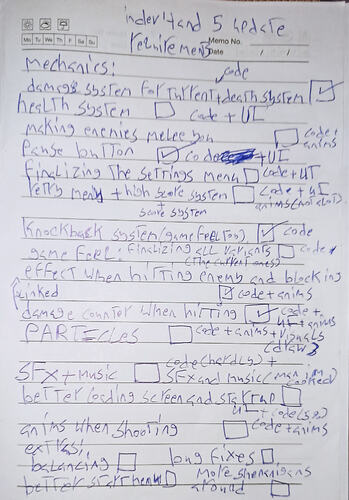 inderyland 5 update
requirements
Memo No.
Mo Tu We Th Fr Sa Su
Date / /
mechanics:
code
damage system for turret+death system
health system code + UI
making enemies melee you code + anims
Pause button code +UI
finalizing the settings menu code+UI
retry menu + high score system code + UI anims(not alot)
+
score system
knockback system(game feel too) code
game feel: finalizing all variants code
(the current ones)
effect when hitting enemy and blocking
linked code+anims
damage counter when hitting code + UI +anims
PARTICLES code + anims + visuals
(draw)
code(hardly) +
SFX + music SFX and music(man im cooked)
better loading screen and startup
UI +code(SFX)
anims when shooting code + anims
extras:
balancing bug fixes
better startmenu more shenanigans
around